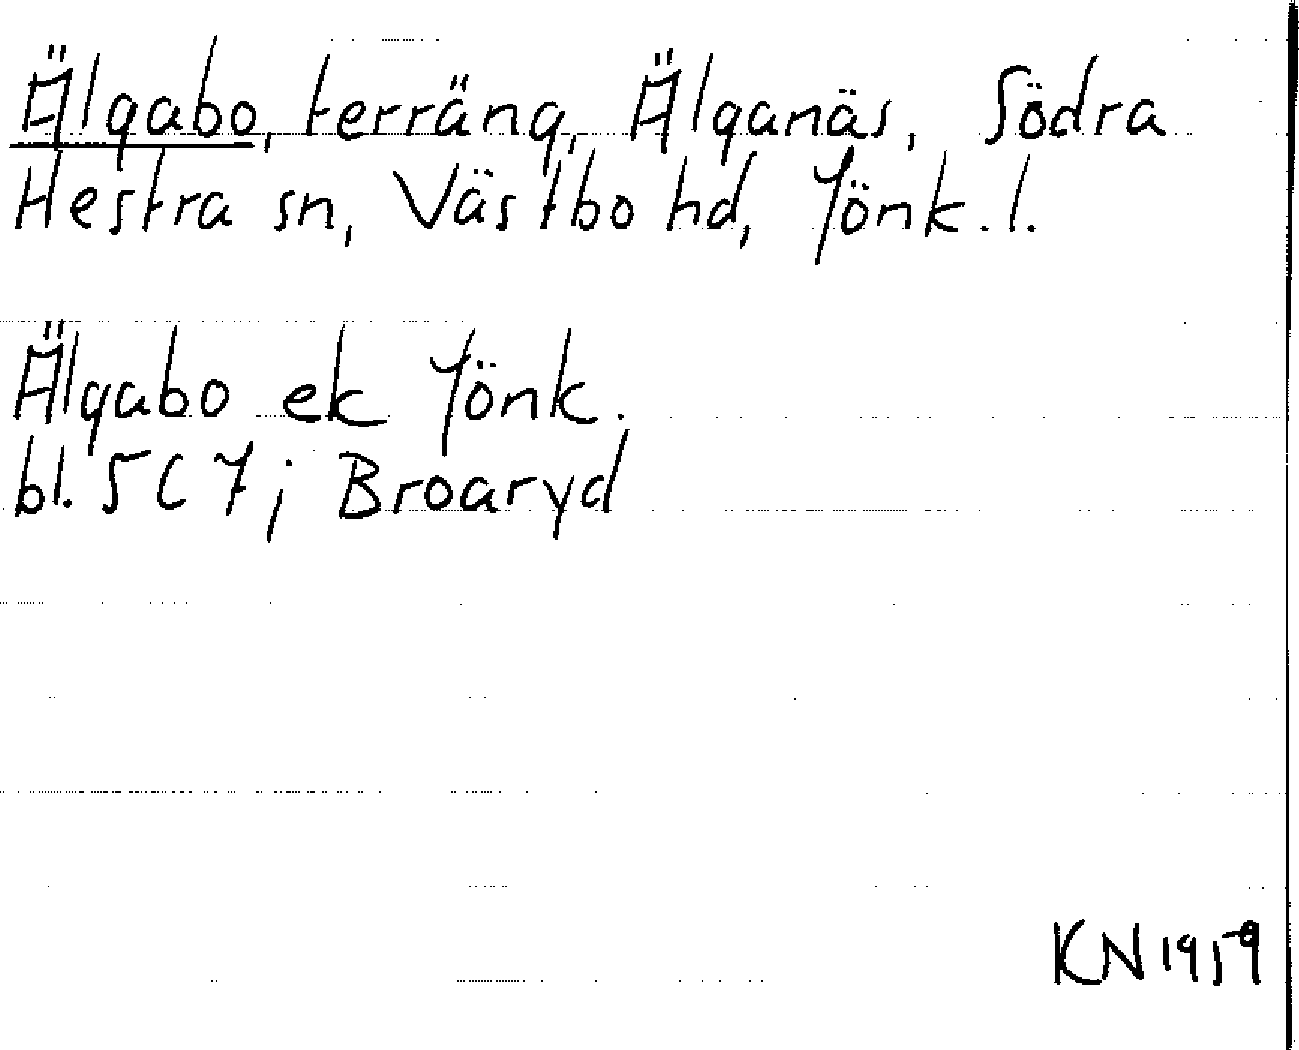 Älgabo, terräng, Älganäs, Södra
Hestra sn, Västbo hd, Jönk. l.
Älgabo ek Jönk.
bl. 5C7; Broaryd
KN 1959